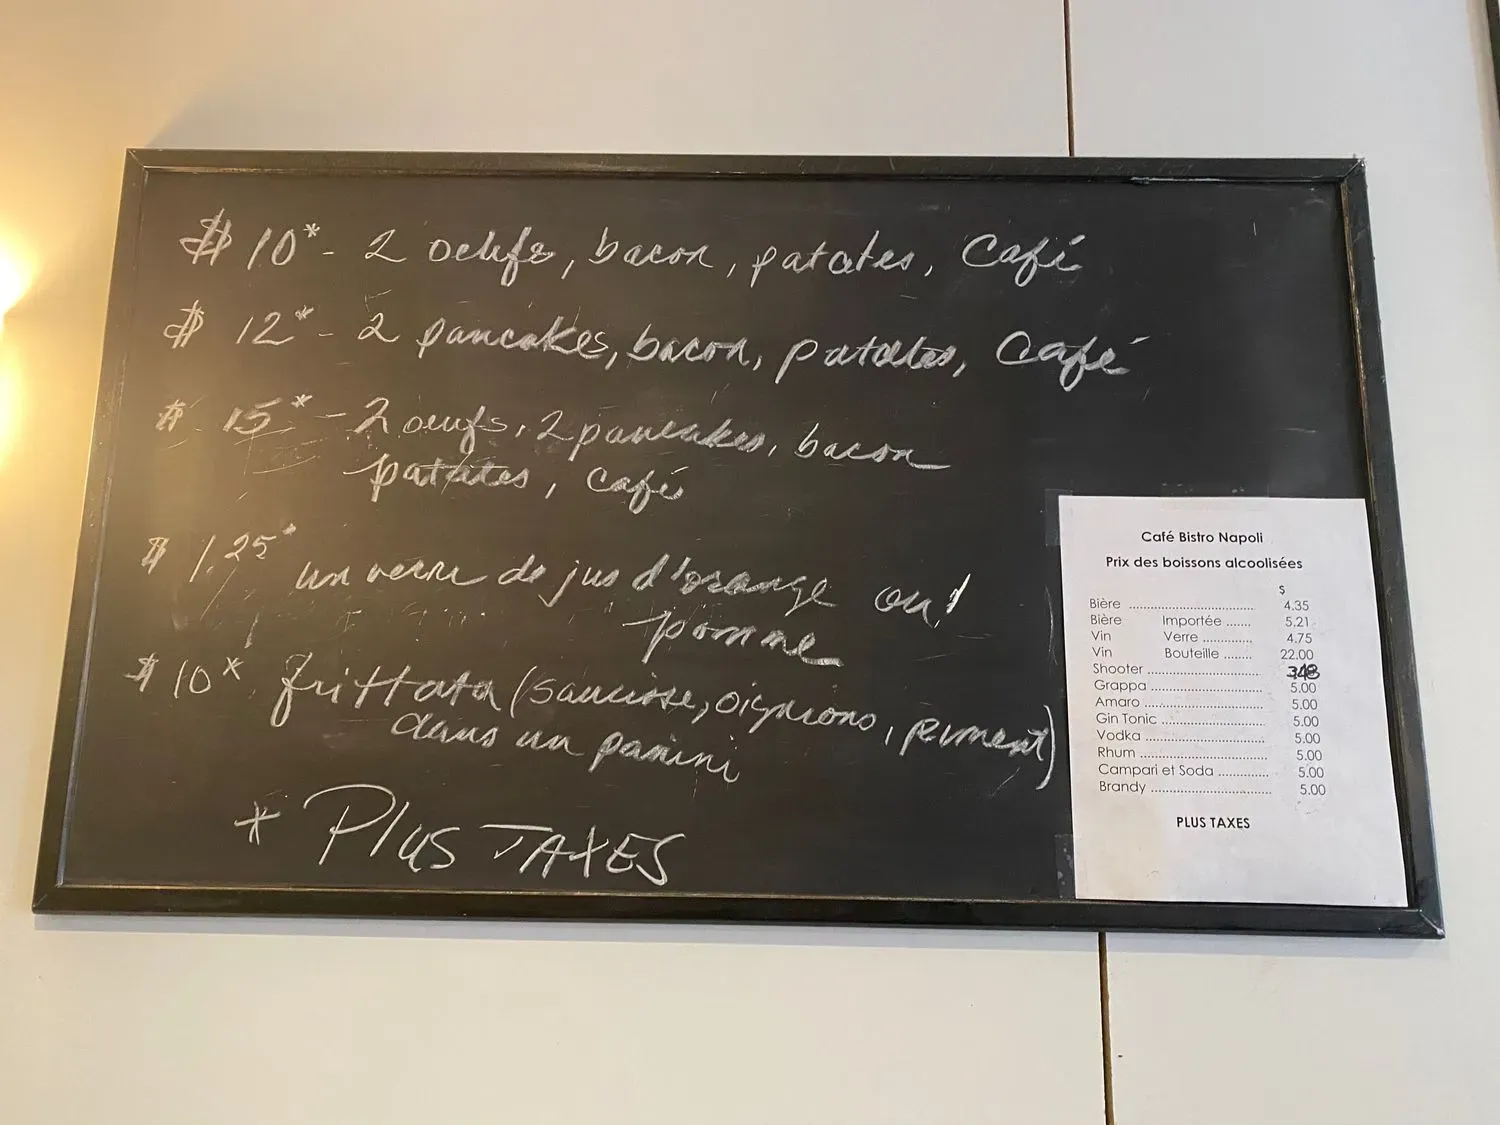 $ 10* - 2 oeufs, bacon, patates, Café
$ 12* - 2 pancakes, bacon, patates, Café
$ 15* - 2 oeufs, 2 pancakes, bacon
patates, café
$ 1.25* un verre de jus d'orange ou
pomme
$ 10* frittata (saucisse, oignions, piment)
dans un panini
* PLUS TAXES
Café Bistro Napoli
Prix des boissons alcoolisées
$
Bière ............................... 4.35
Bière Importée ....... 5.21
Vin Verre ............. 4.75
Vin Bouteille ........ 22.00
Shooter ............................
Grappa ............................ 5.00
Amaro ............................. 5.00
Gin Tonic .......................... 5.00
Vodka .............................. 5.00
Rhum ............................... 5.00
Campari et Soda ............. 5.00
Brandy .............................. 5.00
PLUS TAXES